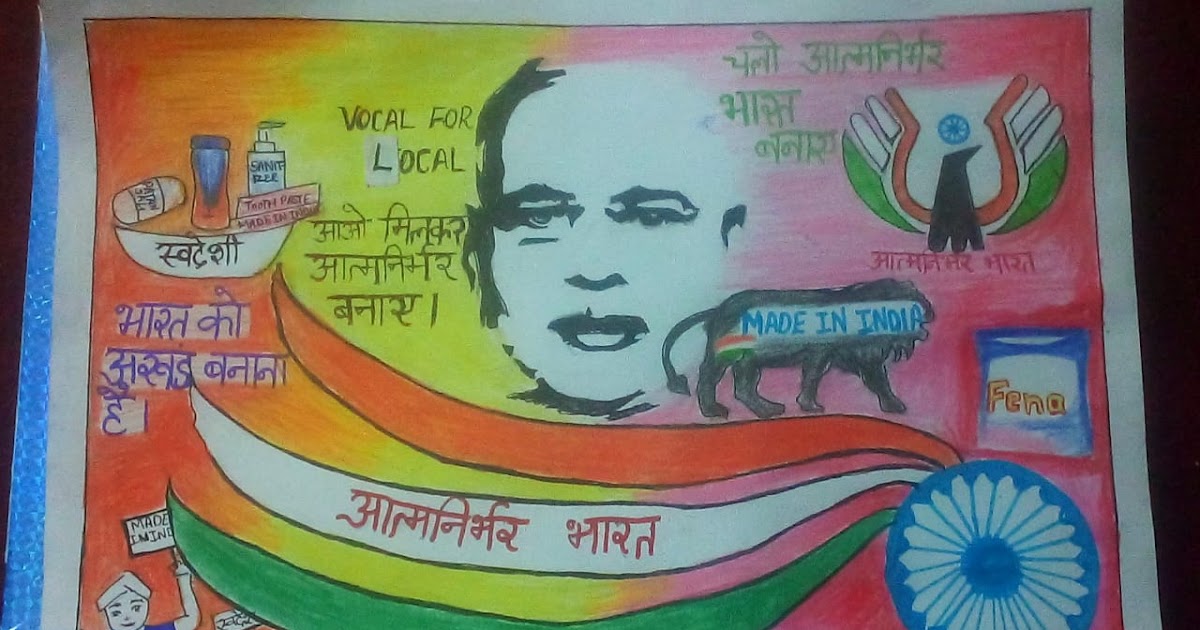 VOCAL FOR
LOCAL
चलो आत्मनिर्भर
भारत
बनाए
आत्मनिर्भर भारत
SANIT
TOOTH PASTE
MADE IN INDIA
स्वदेशी
आओ मिलकर
आत्मनिर्भर
बनाए।
भारत को
अखंड बनाना
है।
MADE IN INDIA
Fena
आत्मनिर्भर भारत
MADE
IN IND
स्वदेशी